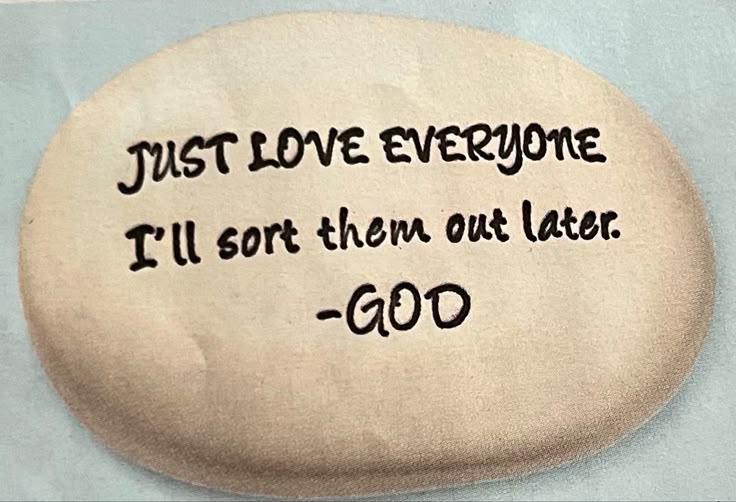 JUST LOVE EVERYONE
I'll sort them out later.
-GOD